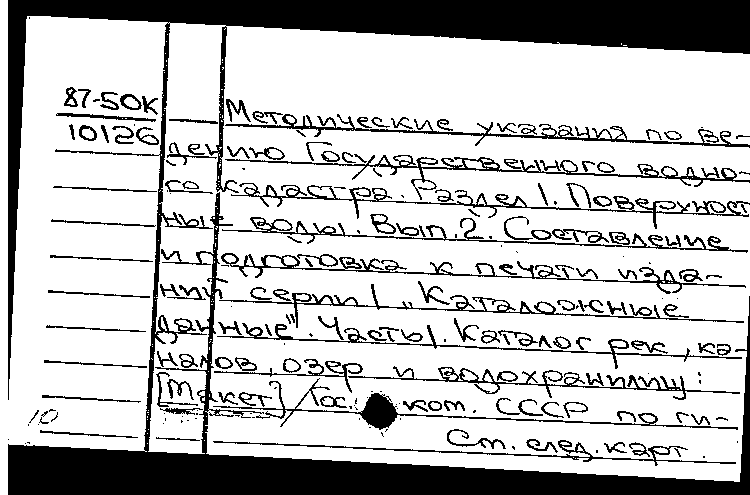 87-50К
10126
Методические указания по ве-
дению Государственного водно-
го кадастра. Раздел 1. Поверхност
ные воды. Вып. 2. Составление
и подготовка к печати изда-
ний серии 1 „Каталожные
данные". Часть 1. Каталог рек, ка-
налов, озер и водохранилищ:
[Макет] / Гос. ком. СССР по ги-
См. след. карт.
10